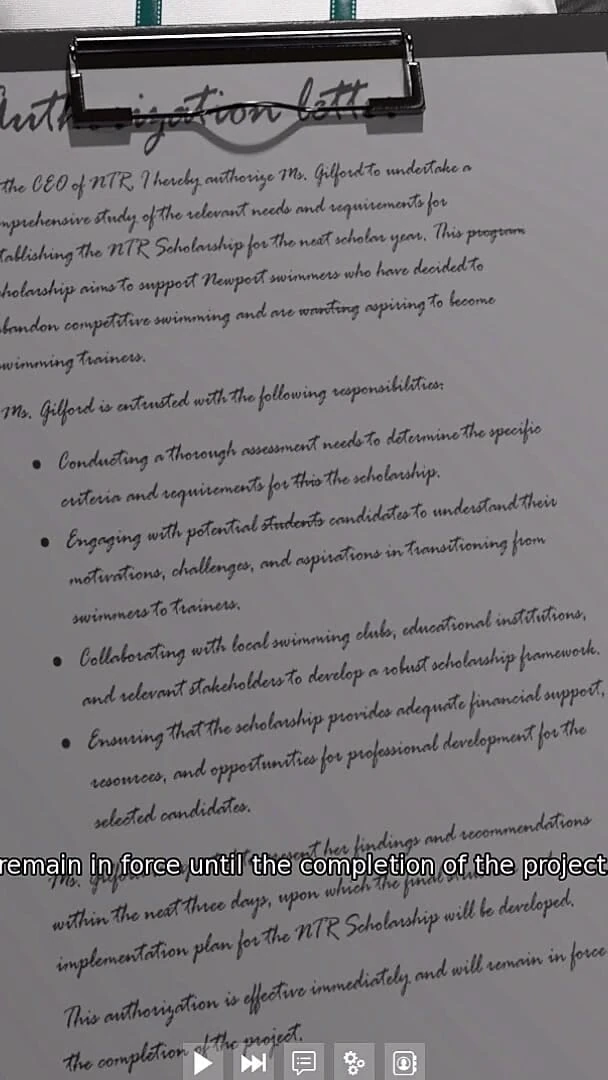 Authorization lette
the CEO of NTR, I hereby authorize Ms. Gilford to undertake a
mprehensive study of the relevant needs and requirements for
tablishing the NTR Scholarship for the next scholar year. This program
holarship aims to support Newport swimmers who have decided to
bandon competitive swimming and are wanting aspiring to become
wimming trainers.
Ms. Gilford is entrusted with the following responsibilities:
• Conducting a thorough assessment needs to determine the specific
criteria and requirements for this the scholarship.
• Engaging with potential students candidates to understand their
motivations, challenges, and aspirations in transitioning from
swimmers to trainers.
• Collaborating with local swimming clubs, educational institutions,
and relevant stakeholders to develop a robust scholarship framework.
• Ensuring that the scholarship provides adequate financial support,
resources, and opportunities for professional development for the
selected candidates.
Ms. Gilford present her findings and recommendations
remain in force until the completion of the project
within the next three days, upon which the final
implementation plan for the NTR Scholarship will be developed.
This authorization is effective immediately and will remain in force
the completion of the project.